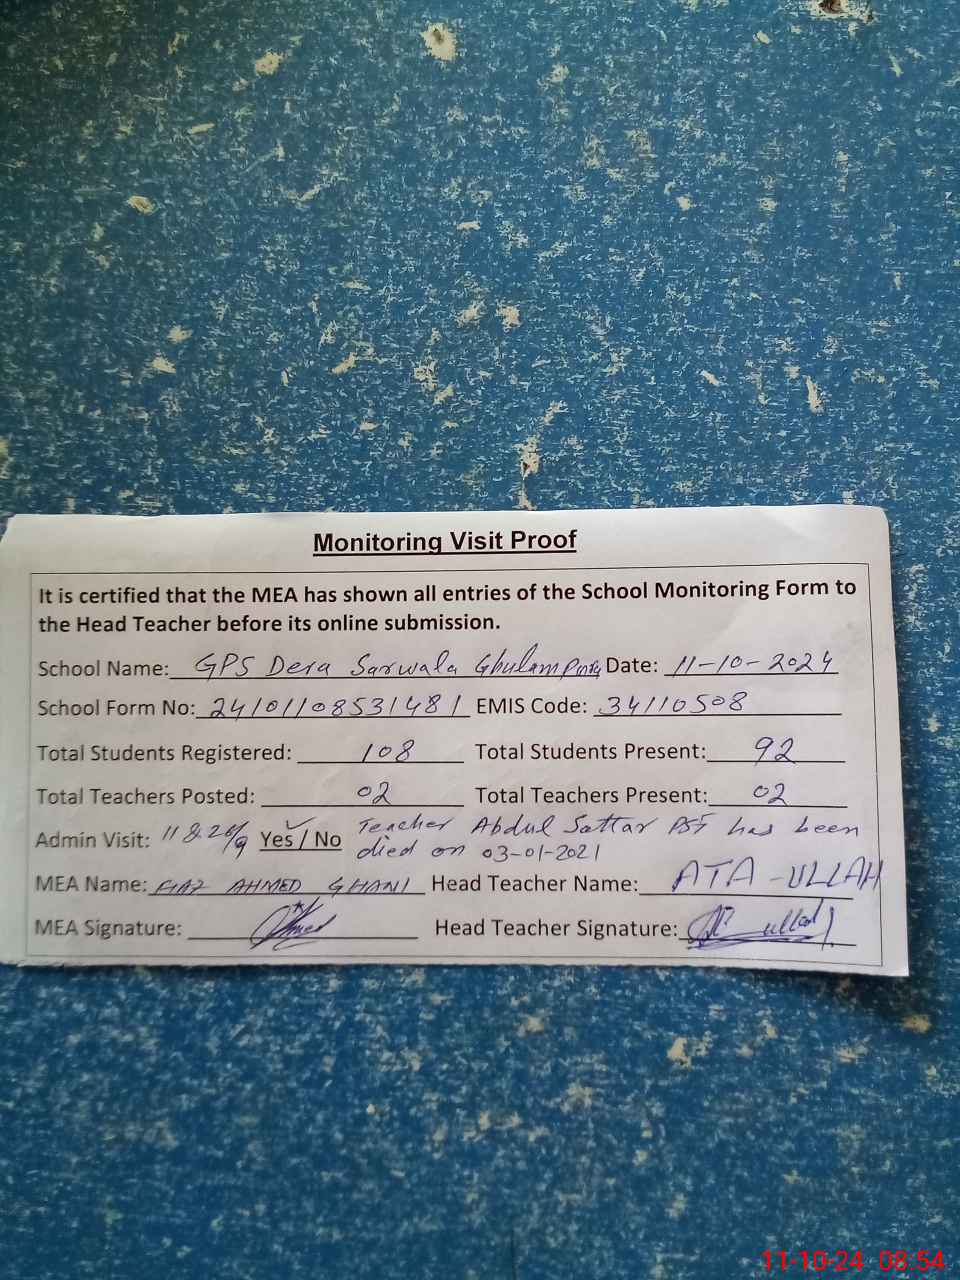 Monitoring Visit Proof
It is certified that the MEA has shown all entries of the School Monitoring Form to
the Head Teacher before its online submission.
School Name: GPS Dera Sarwala Ghulam Date: 11-10-2024
School Form No: 24101108531481 EMIS Code: 34110508
Total Students Registered: 108 Total Students Present: 92
Total Teachers Posted: 02 Total Teachers Present: 02
Admin Visit: Yes / No Teacher Abdul Sattar PST has been
died on 03-01-2021
MEA Name: FIAZ AHMED GHANI Head Teacher Name: ATA-ULLAH
MEA Signature: Head Teacher Signature:
11-10-24 08:54